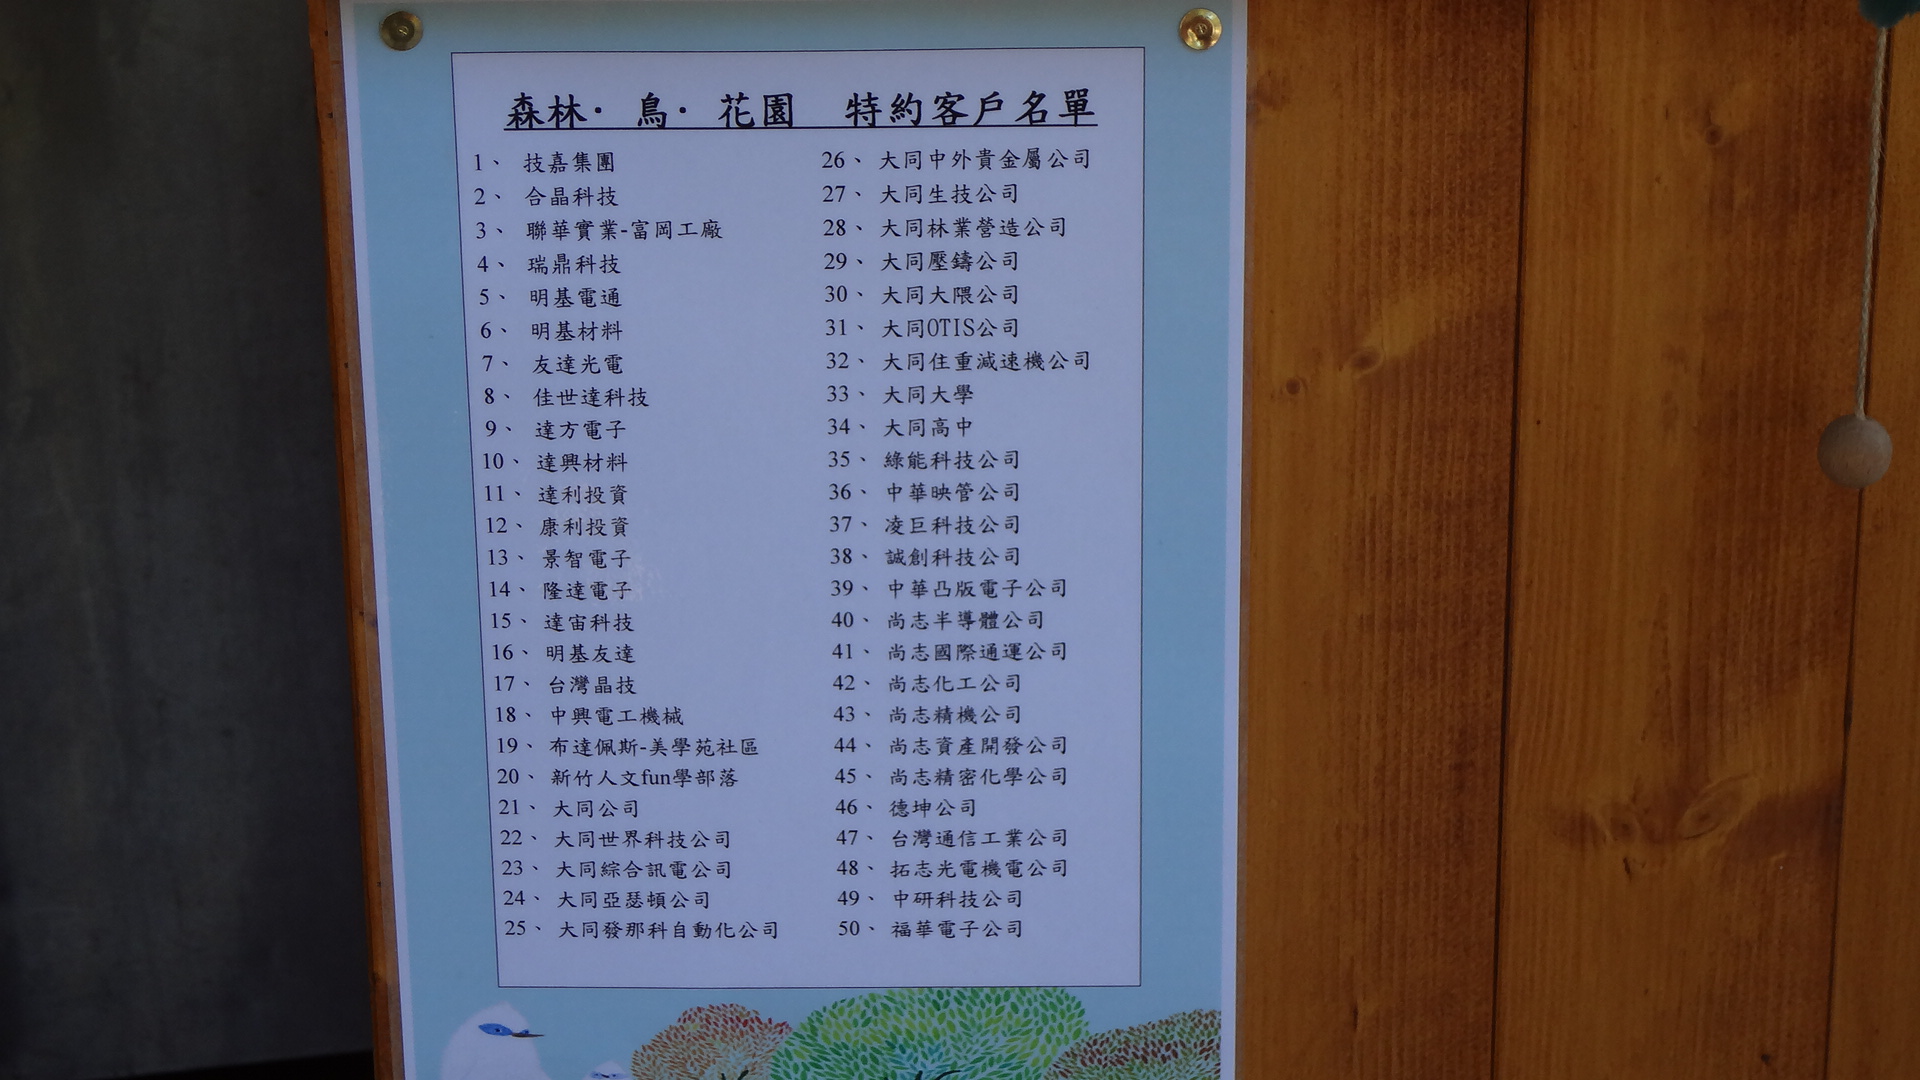 森林・鳥・花園　特約客戶名單
1、技嘉集團
2、合晶科技
3、聯華實業-富岡工廠
4、瑞鼎科技
5、明基電通
6、明基材料
7、友達光電
8、佳世達科技
9、達方電子
10、達興材料
11、達利投資
12、康利投資
13、景智電子
14、隆達電子
15、達宙科技
16、明基友達
17、台灣晶技
18、中興電工機械
19、布達佩斯-美學苑社區
20、新竹人文fun學部落
21、大同公司
22、大同世界科技公司
23、大同綜合訊電公司
24、大同亞瑟頓公司
25、大同發那科自動化公司
26、大同中外貴金屬公司
27、大同生技公司
28、大同林業營造公司
29、大同壓鑄公司
30、大同大隈公司
31、大同OTIS公司
32、大同住重減速機公司
33、大同大學
34、大同高中
35、綠能科技公司
36、中華映管公司
37、凌巨科技公司
38、誠創科技公司
39、中華凸版電子公司
40、尚志半導體公司
41、尚志國際通運公司
42、尚志化工公司
43、尚志精機公司
44、尚志資產開發公司
45、尚志精密化學公司
46、德坤公司
47、台灣通信工業公司
48、拓志光電機電公司
49、中研科技公司
50、福華電子公司